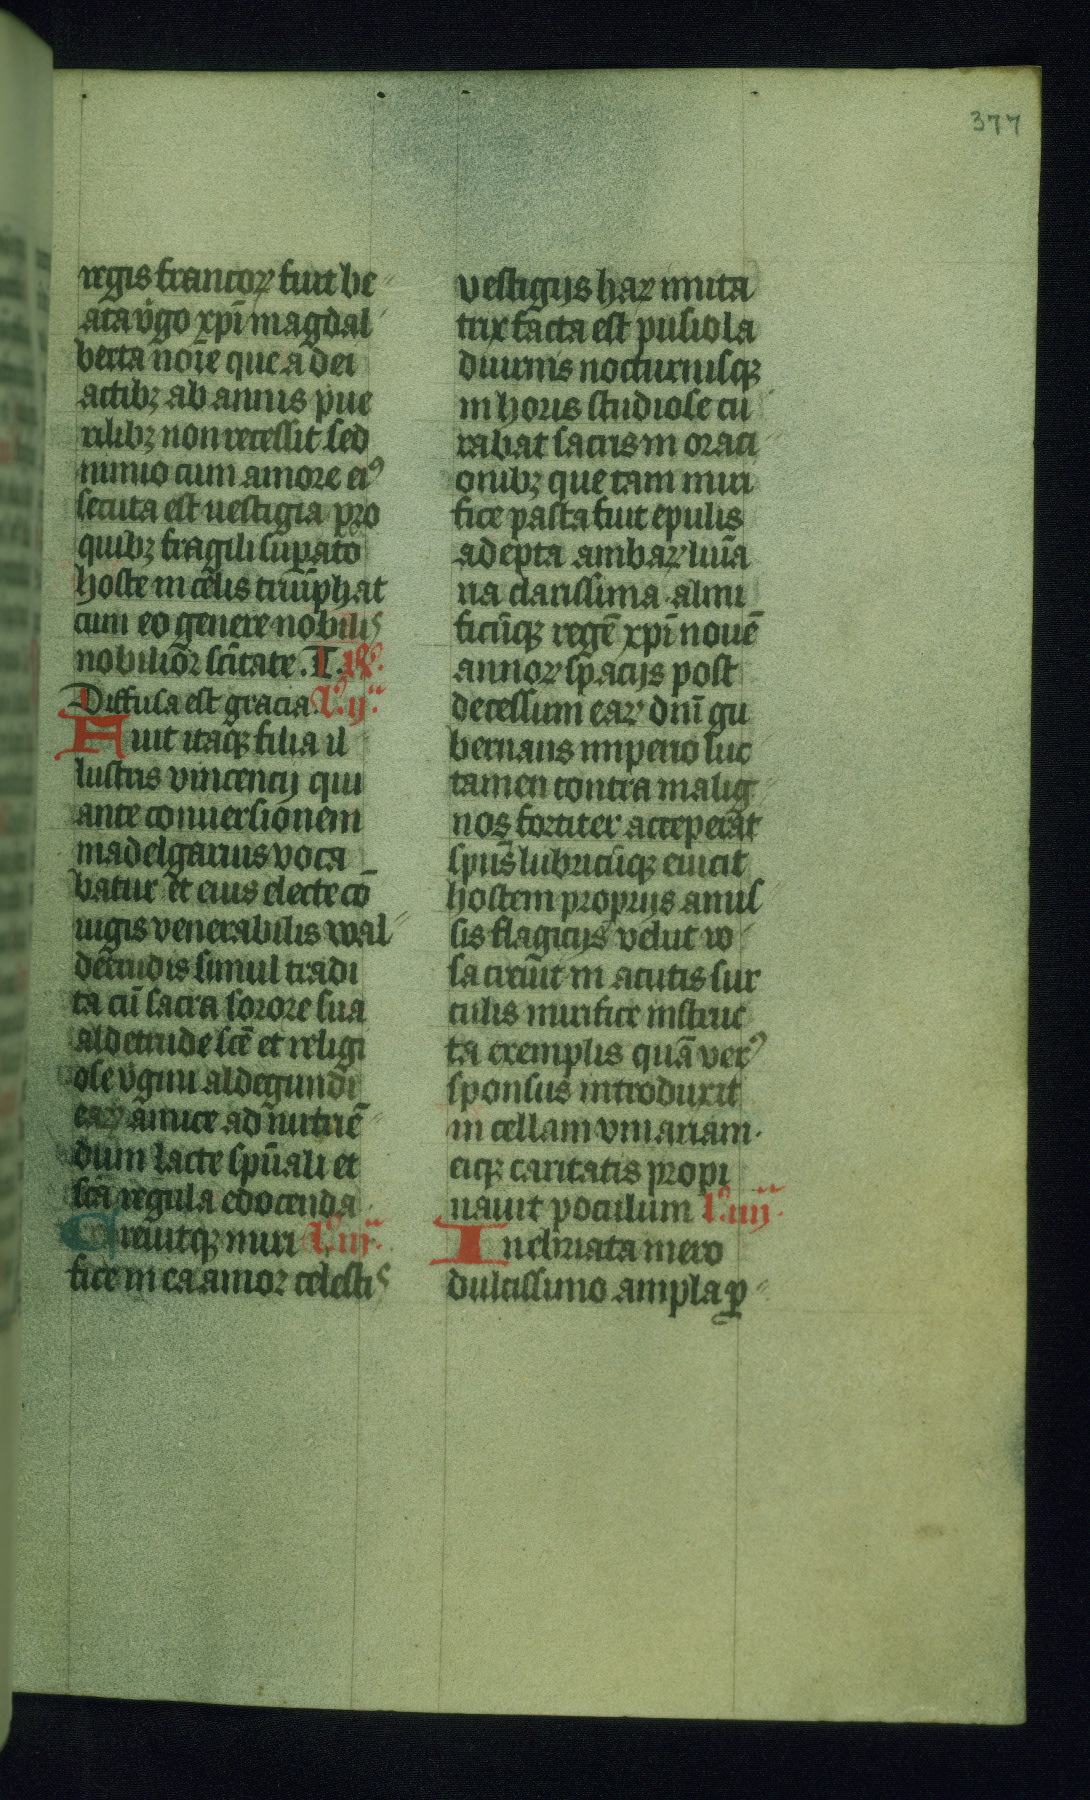 377
regis francoꝝ fuit be
ata v̾go xp̄i magdal
berta noīe que a dei
actibꝫ ab annis pue
rilibꝫ non recessit sed
nimio cum amore eiꝰ
secuta est uestigia pro
quibꝫ fragili sup̱ato
hoste in cēlis triūphat
cum eo genere nobilis
nobilior sc̄itate. T.
Diffusa est gracia. L.ij.
Fuit itaqꝫ filia il
lustris vincencij qui
ante conuersionem
madelgarius voca
batur et eius electe cō
iugis venerabilis wal
detrudis simul tradi
ta cū sacra sorore sua
aldetrude sc̄e et religi
ose v̾gini aldegundi
eaꝝ amice ad nutriē
dum lacte sp̄uali et
sc̄a regula edocenda
Creuitqꝫ miri L.iij.
fice in ea amor celestis
vestigijs haꝝ imita
trix facta est pusiola
diurnis nocturnisqꝫ
in horis studiose cu
rabat sacris in orati
onibꝫ que tam miri
fice pasta fuit epulis
adepta ambaꝝ
na clarissima almi
ficūqꝫ regē xp̄i nouē
annoꝝ spacijs post
decessum eaꝝ dn̄i gu
bernans imperio suc
tamen contra malig
nos fortiter acceperat
sp̄us lubricūqꝫ eiicit
hostem proprijs amul
sis flagicijs velut ro
sa creuit in acutis sur
culis mirifice instruc
ta exemplis quā verꝰ
sponsus introduxit
in cellam vinariam.
eiqꝫ caritatis propi
nauit poculum L.iiij.
Inebriata mero
dulcissimo ampla ꝑ